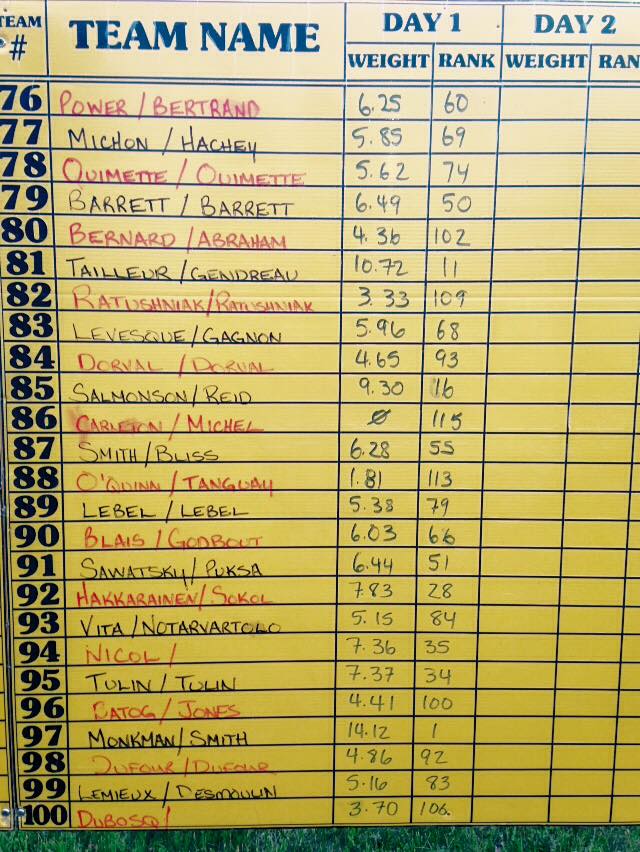 TEAM # TEAM NAME DAY 1 DAY 2
WEIGHT RANK WEIGHT RAN
76 POWER / BERTRAND 6.25 60
77 MICHON / HACHEY 5.85 69
78 OUIMETTE / OUIMETTE 5.62 74
79 BARRETT / BARRETT 6.49 50
80 BERNARD / ABRAHAM 4.36 102
81 TAILLEUR / GENDREAU 10.72 11
82 RATUSHNIAK / RATUSHNIAK 3.33 109
83 LEVESQUE / GAGNON 5.96 68
84 DORVAL / DORVAL 4.65 93
85 SALMONSON / REID 9.30 16
86 CARLETON / MICHEL Ø 115
87 SMITH / BLISS 6.28 55
88 O'QUINN / TANGUAY 1.81 113
89 LEBEL / LEBEL 5.38 79
90 BLAIS / GODBOUT 6.03 66
91 SAWATSKY / PUKSA 6.44 51
92 HAKKARAINEN / SOKOL 7.83 28
93 VITA / NOTARVARTOLO 5.15 84
94 NICOL / 7.36 35
95 TULIN / TULIN 7.37 34
96 BATOG / JONES 4.41 100
97 MONKMAN / SMITH 14.12 1
98 DUFOUR / DUFOUR 4.86 92
99 LEMIEUX / DESMOULIN 5.16 83
100 DUBOSQ / 3.70 106